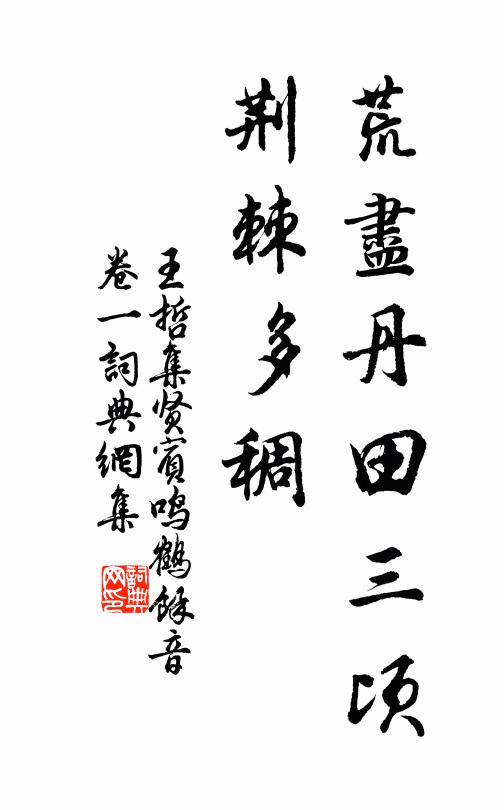 荒盡丹田三頃
荆棘多稠
王哲集贤賓鸣鶴餘音
卷一詞典網集
詞典
网印